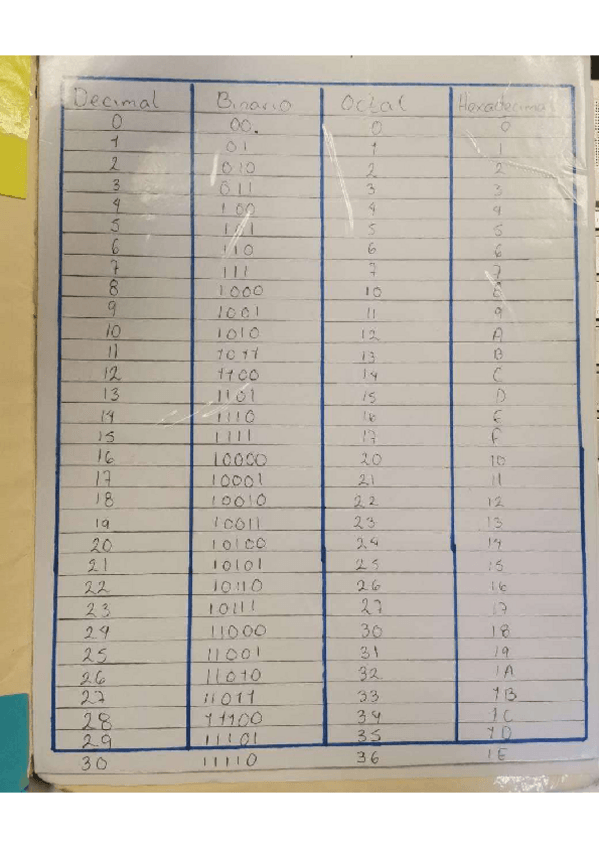 Decimal Binario Octal Hexadecimal
0 00. 0 0
1 01 1 1
2 010 2 2
3 011 3 3
4 100 4 4
5 101 5 5
6 110 6 6
7 111 7 7
8 1000 10 8
9 1001 11 9
10 1010 12 A
11 1011 13 B
12 1100 14 C
13 1101 15 D
14 1110 16 E
15 1111 17 F
16 10000 20 10
17 10001 21 11
18 10010 22 12
19 10011 23 13
20 10100 24 14
21 10101 25 15
22 10110 26 16
23 10111 27 17
24 11000 30 18
25 11001 31 19
26 11010 32 1A
27 11011 33 1B
28 11100 34 1C
29 11101 35 1D
30 11110 36 1E